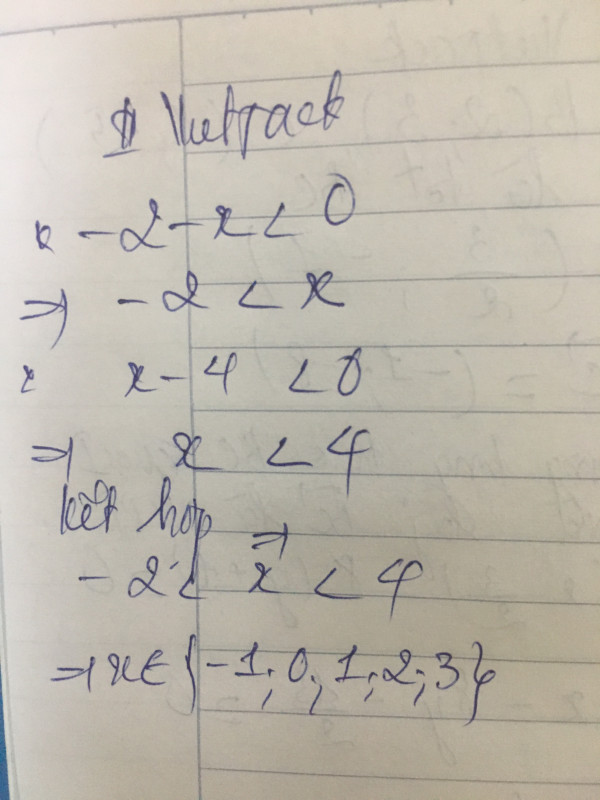 Vietjack
* -2-x < 0
=> -2 < x
* x-4 < 0
=> x < 4
kết hợp =>
-2 < x < 4
=> x ∈ {-1; 0; 1; 2; 3}